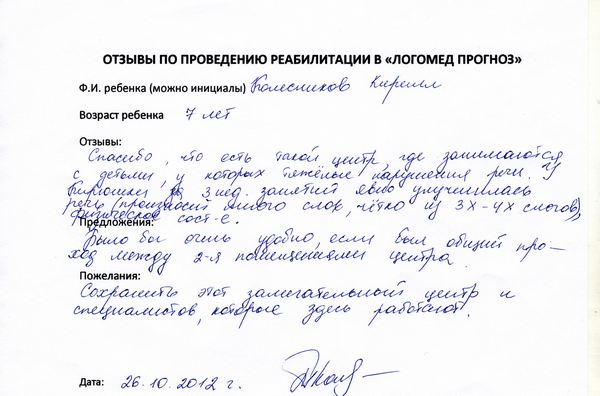 ОТЗЫВЫ ПО ПРОВЕДЕНИЮ РЕАБИЛИТАЦИИ В «ЛОГОМЕД ПРОГНОЗ»
Ф.И. ребенка (можно инициалы) Колесников Кирилл
Возраст ребенка 7 лет
Отзывы:
Спасибо, что есть такой центр, где занимаются
с детьми, у которых тяжёлые нарушения речи. У
Кирюшки 3 нед. занятий явно улучшилась
речь (произносит много слов, чётко из 3х-4х слогов),
физическое сост-е.
Предложения:
Было бы очень удобно, если был общий про-
ход между 2-я помещениями центра.
Пожелания:
Сохранить этот замечательный центр и
специалистов, которые здесь работают.
Дата: 26.10.2012 г.